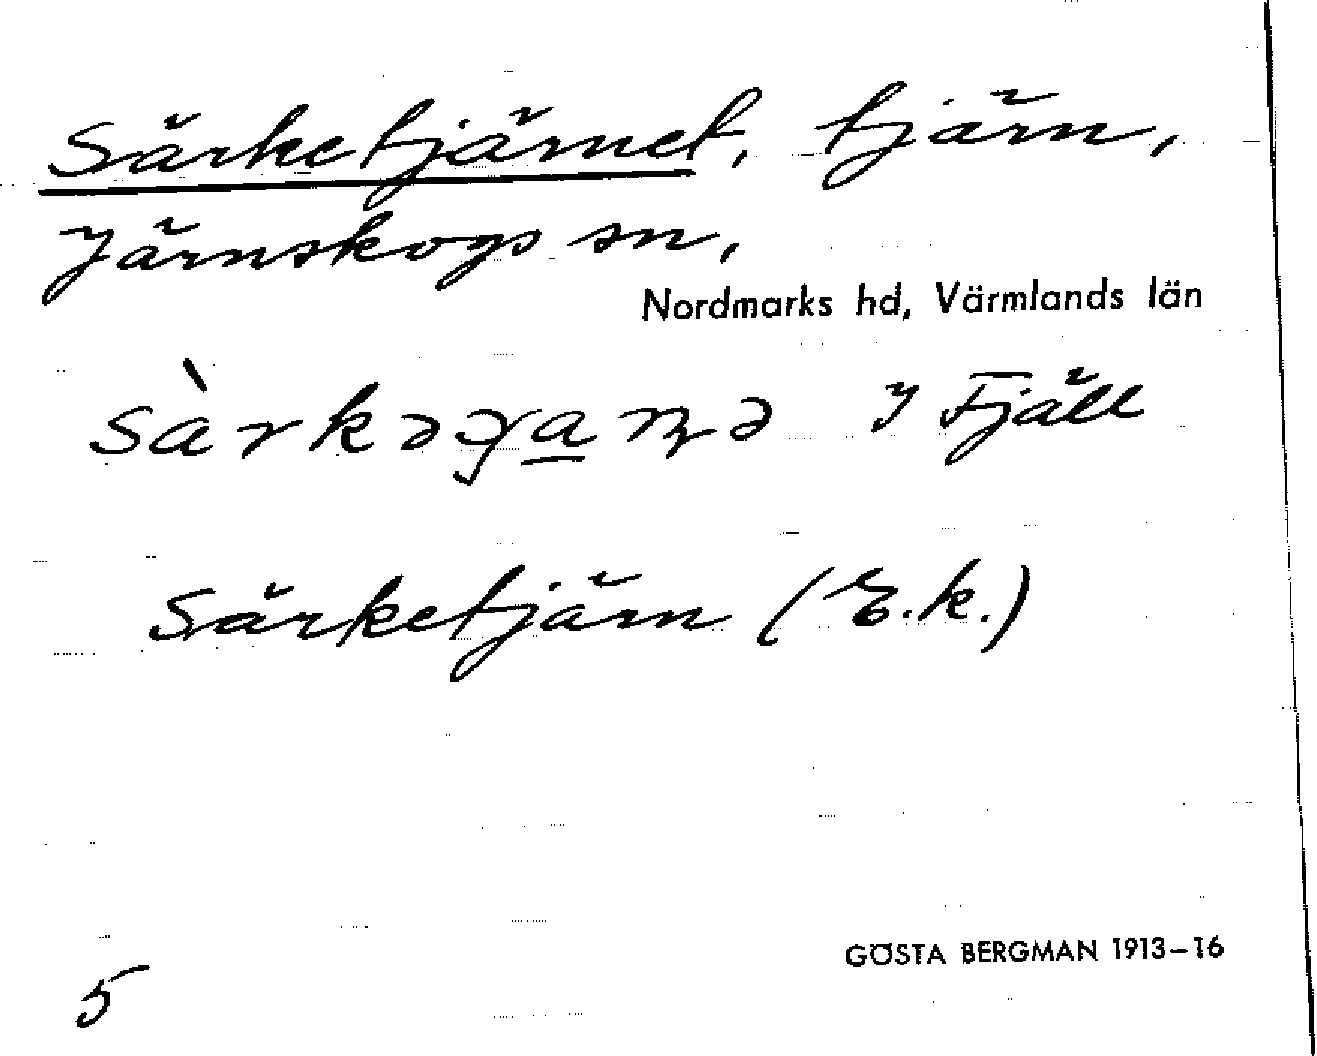 Särketjärnet, tjärn,
Järnskogs sn,
Nordmarks hd, Värmlands län
I Fjäll
Särketjärn (E.k.)
GÖSTA BERGMAN 1913–16
5